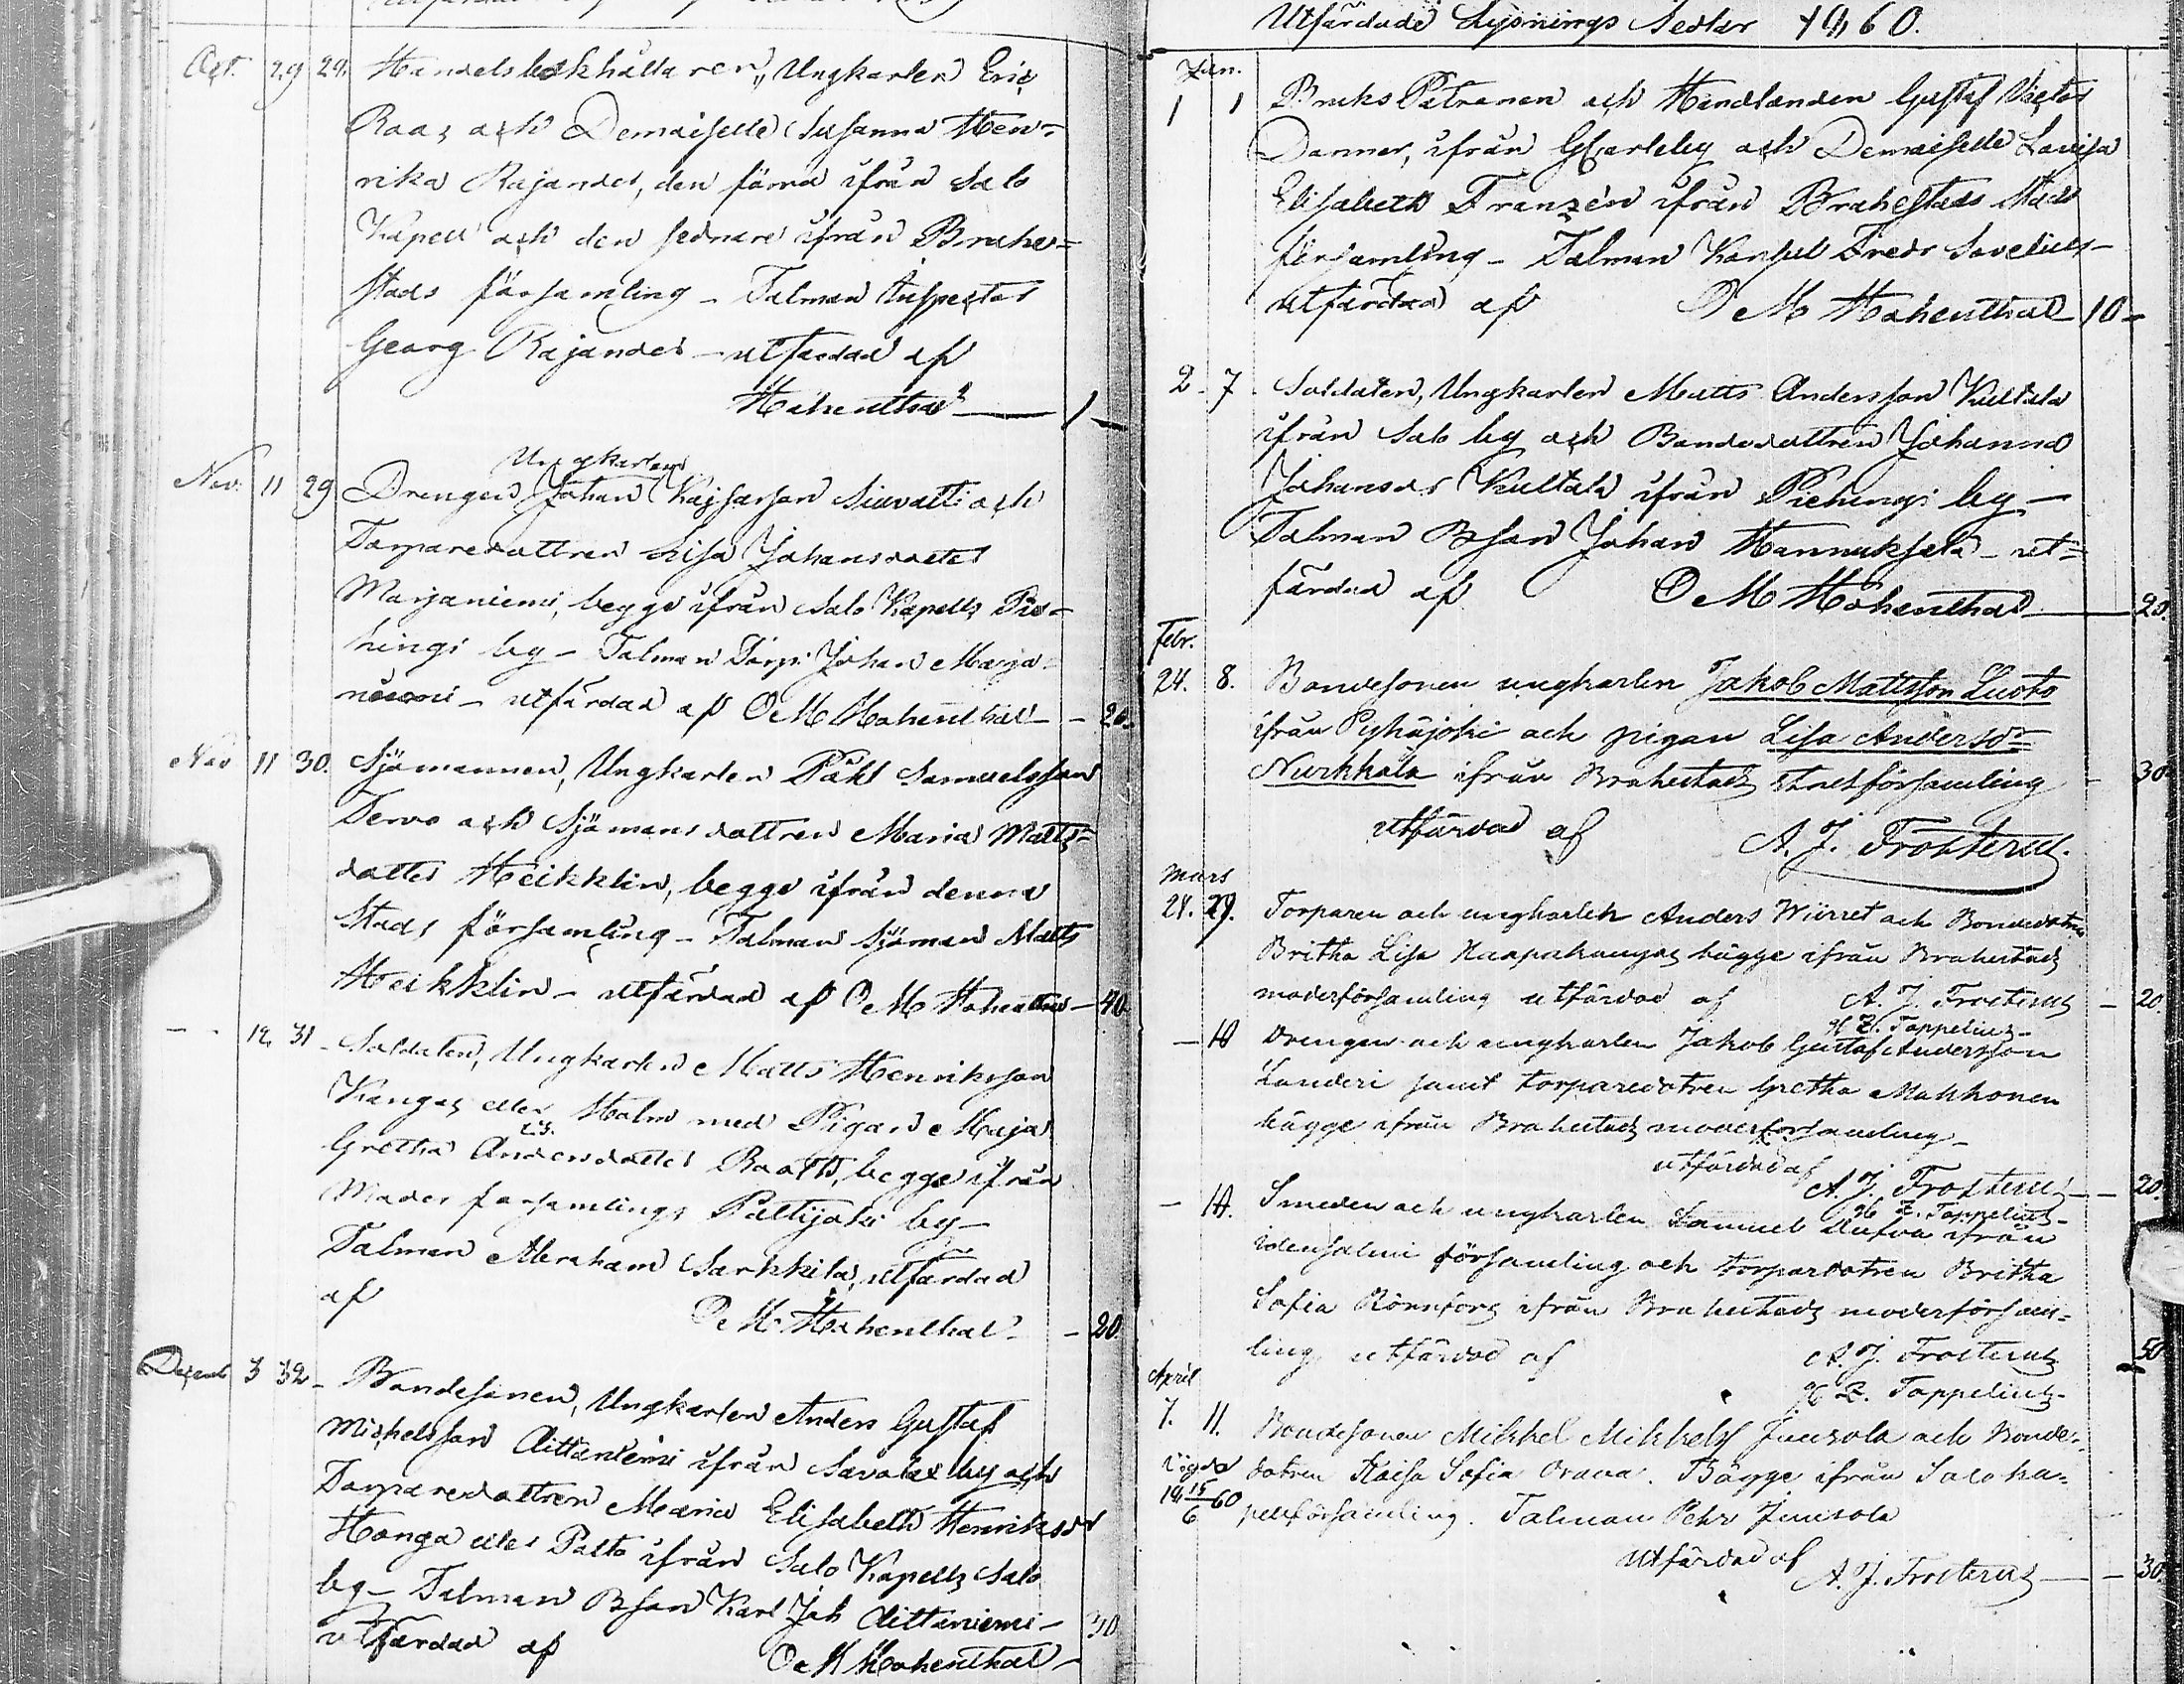 Oct. 29 29. Handelsbokhållaren, Ungkarlen Eric
Raas och Demoiselle Susanna Hen-
rika Rajander, den förra ifrån Salo
Kapell och den sednare ifrån Brahe-
stads församling – Talman Inspector
Georg Rajander – utfärdad af
Hohenthal — 1 —
Nov. 11 29 Drengen Ungkarlen Johan Kajsarson Siuvatti och
Torparedottren Lisa Johansdotter
Marjaniemi, begge ifrån Salo Kapells Pie-
hingi by – Talman Torp: Johan Marja-
niemi – utfärdad af O M Hohenthal – - 20.
Nov 11 30. Sjömannen, Ungkarlen Påhl Samuelsson
Tervo och Sjömansdottren Maria Matts-
dotter Heikklin, begge ifrån denna
Stads församling – Talman Sjöman Matts
Heikklin – utfärdad af O M Hohenthal – 40
- - 12 31 – Soldaten, Ungkarlen Matts Henriksson
Kangas eller Holm med Pigan Maja
Gretha Andersdotter Raath, begge ifrån
Moderförsamlings Pattijoki by –
Talman Abraham Sarkkila, utfärdad
af O M Hohenthal – - 20.
Decemb 3 32 – Bondesonen, Ungkarlen Anders Gustaf
Michelsson Aittaniemi ifrån Savolax by och
Torparedottren Maria Elisabeth Henriksdr
Honga eller Palto ifrån Salo Kapells Salo
by – Talman Bson Karl Joh Aittaniemi –
utfärdad af O M Hohenthal – 30
Utfärdade Lysnings Sedlar 1860.
Jan.
1 1 Bruks Patronen och Handlanden Gustaf Victor
Danner, ifrån GCarleby och Demoiselle Lovisa
Elisabeth Franzén ifrån Brahestads Stads
församling – Talman Konsul Fredr Sovelius –
utfärdad af O M Hohenthal – 10 –
2. 7. Soldaten, Ungkarlen Matts Andersson Kultala
ifrån Salo by och Bondedottren Johanna
Johansdr Kultala ifrån Piehingi by –
Talman Bson Johan Hannuksela – ut-
färdad af O M Hohenthal — 20.
Febr.
24. 8. Bondesonen ungkarlen Jakob Mattsson Luoto
ifrån Pyhäjoki och pigan Lisa Andersdr
Nurkkala ifrån Brahestads stadsförsamling – 30
utfärdad af A. J. Frosterus.
Mars
24. 29. Torparen och ungkarlen Anders Wiirret och Bondedotren
Britha Lisa Haapakangas bägge ifrån Brahestads
moderförsamling utfärdad af A. J. Frosterus – 20.
Z. Toppelius –
– 10 Drengen och ungkarlen Jakob Gustaf Andersson
Landeri samt torparedotren Gretha Makkonen
bägge ifrån Brahestads moderförsamling –
utfärdad af
A. J. Frosterus – – 20.
Z. Toppelius –
– 10. Smeden och ungkarlen Samuel Rufva ifrån
Idensalmi församling och torpardotren Britha
Sofia Rönnfors ifrån Brahestads moderförsam-
ling, utfärdad af A. J. Frosterus 50
Z. Toppelius –
April
7. 11. Bondesonen Mikkel Mikkels Junsola och Bonde-
Vigda dotren Kaisa Sofia Orava. Bägge ifrån Salo ka-
15/6 60 pellförsamling. Talman Pehr Junsola
utfärdad af
A. J. Frosterus – – 30.